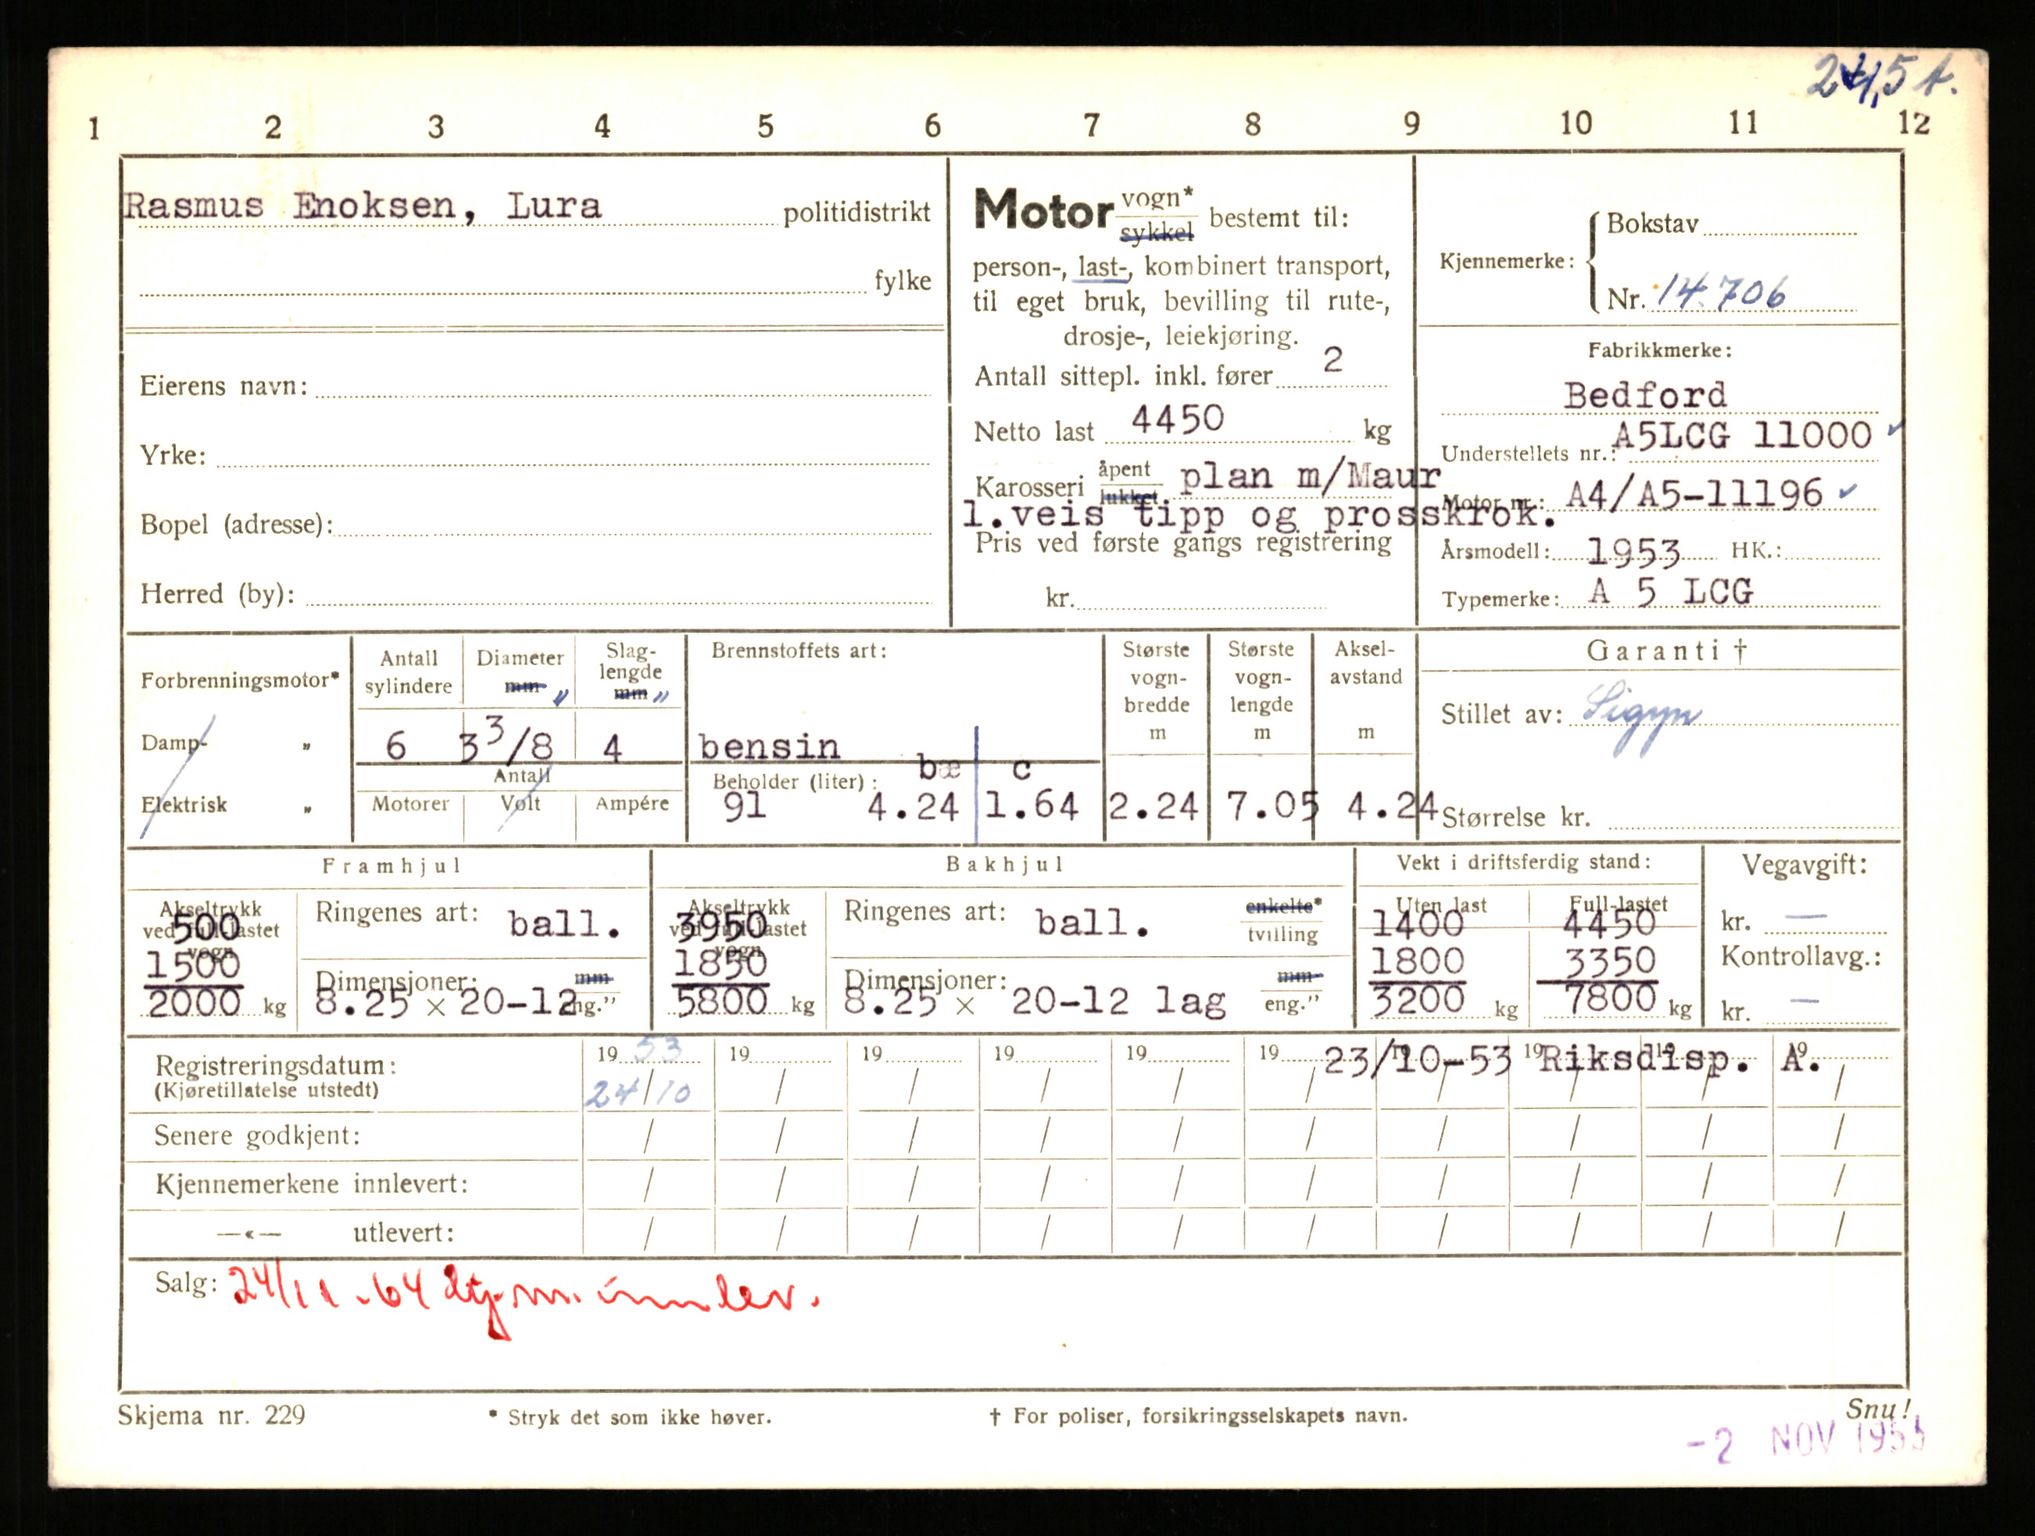 24,5 t.
1 2 3 4 5 6 7 8 9 10 11 12
Rasmus Enoksen, Lura politidistrikt
fylke
Eierens navn:
Yrke:
Bopel (adresse):
Herred (by):
Motor vogn* sykkel bestemt til:
person-, last-, kombinert transport,
til eget bruk, bevilling til rute-,
drosje-, leiekjøring.
Antall sittepl. inkl. fører 2
Netto last 4450 kg
Karosseri åpent lukket plan m/Maur
l.veis tipp og prosskrok.
Pris ved første gangs registrering
kr.
Kjennemerke: Bokstav
Nr. 14.706
Fabrikkmerke:
Bedford
Understellets nr.: A5LCG 11000
Motor nr.: A4/A5-11196
Årsmodell: 1953 HK.:
Typemerke: A 5 LCG
Forbrenningsmotor*
Damp- "
Elektrisk "
Antall sylindere 6
Diameter mm " 3 3/8
Slag-lengde mm " 4
Antall
Motorer Volt Ampére
Brennstoffets art:
bensin
Beholder (liter): bæ c
91 4.24 1.64
Største vogn-bredde m 2.24
Største vogn-lengde m 7.05
Aksel-avstand m 4.24
Garanti †
Stillet av: Sigyn
Størrelse kr.
Framhjul
Akseltrykk ved full-lastet vogn
500
1500
2000 kg
Ringenes art: ball.
Dimensjoner: mm
8.25 × 20-12 eng."
Bakhjul
Akseltrykk ved full-lastet vogn
3950
1850
5800 kg
Ringenes art: ball. enkelte* tvilling
Dimensjoner: mm
8.25 × 20-12 lag eng."
Vekt i driftsferdig stand:
Uten last Full-lastet
1400 4450
1800 3350
3200 kg 7800 kg
Vegavgift:
kr. —
Kontrollavg.:
kr. —
Registreringsdatum: 19 53 19 19 19 19 19 19 19 19 19
23/10-53 Riksdisp. A.
(Kjøretillatelse utstedt) 24/10 / / / / / / / / /
Senere godkjent: / / / / / / / / / /
Kjennemerkene innlevert: / / / / / / / / / /
—«— utlevert: / / / / / / / / / /
Salg: 24/11-64 ktj.m. innlev.
Skjema nr. 229 * Stryk det som ikke høver. † For poliser, forsikringsselskapets navn. Snu!
-2 NOV 1953